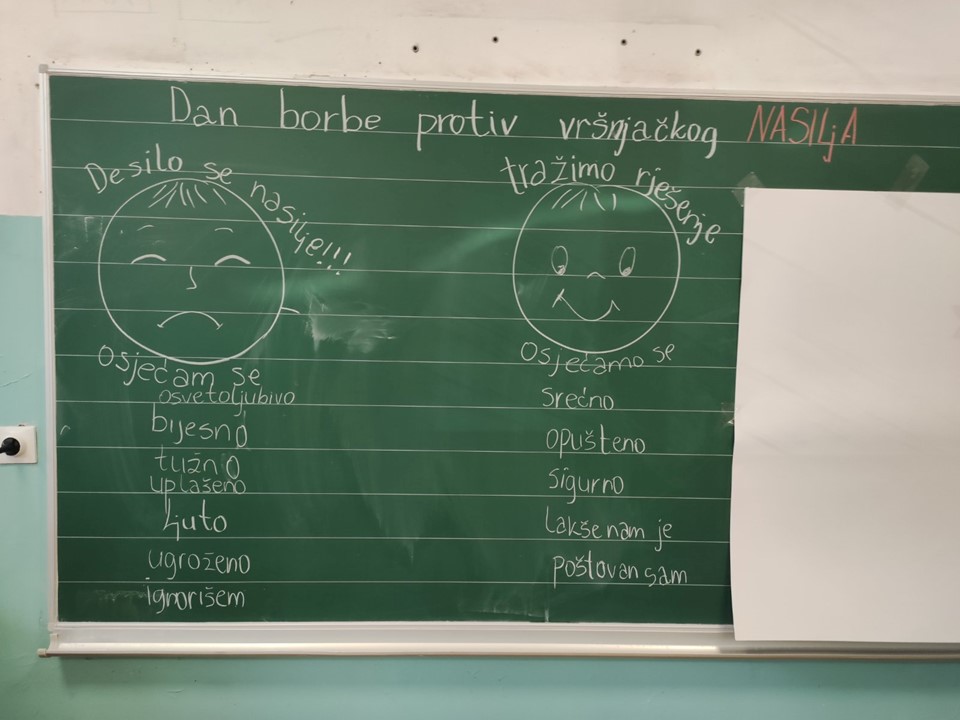 Dan borbe protiv vršnjačkog NASILjA
Desilo se nasilje!!!
Osjećam se
osvetoljubivo
bijesno
tužno
uplašeno
ljuto
ugroženo
ignorišem
tražimo rješenje
Osjećamo se
srećno
opušteno
sigurno
lakše nam je
poštovan sam